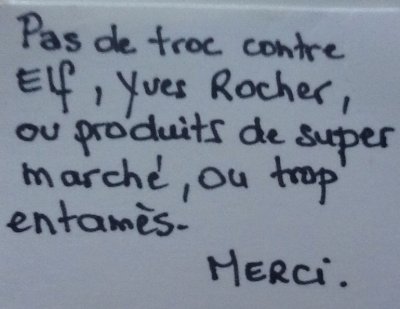 Pas de troc contre
Elf, Yves Rocher,
ou produits de super
marché, ou trop
entamès.
MERCi.